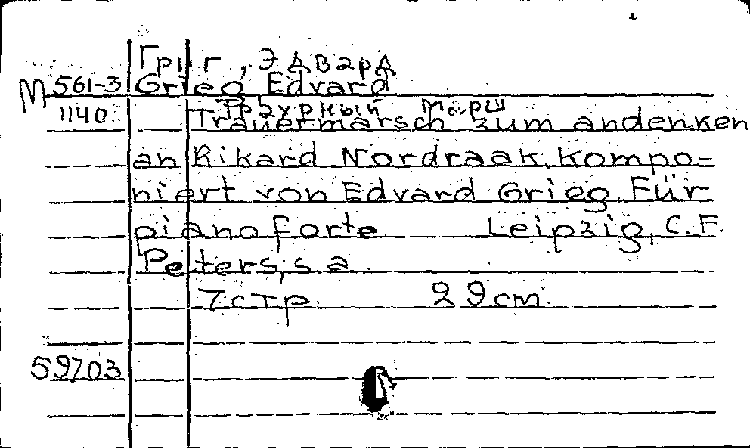 Григ, Эдвард
М 561-3 Grieg Edvard
Траурный марш
1140 Trauermarsch zum andenken
an Rikard Nordraak, kompo-
niert von Edvard Grieg. Für
piano forte Leipzig, C.F.
Peters, s.a.
7 стр 29 cm.
59703